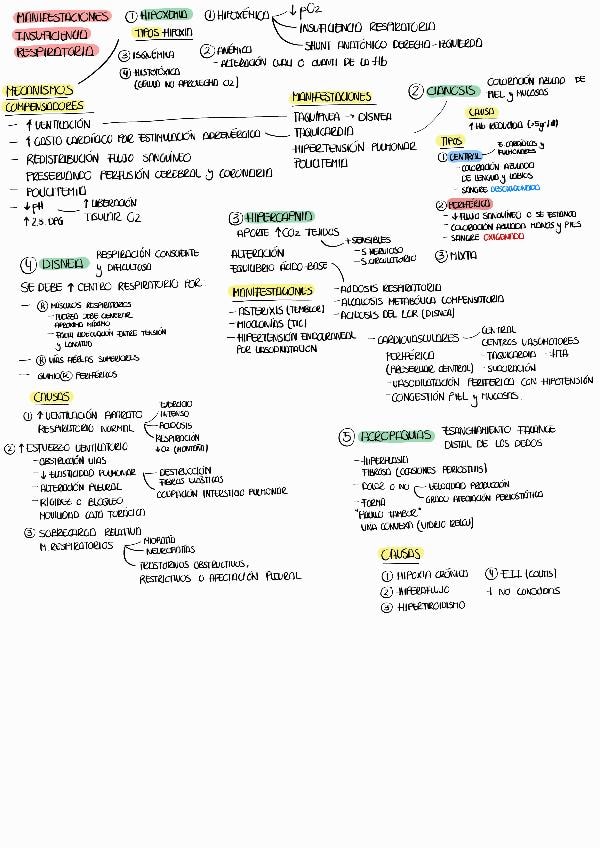 MANIFESTACIONES
INSUFICIENCIA
RESPIRATORIA
① HIPOXEMIA
TIPOS HIPOXIA
① HIPOXÉMICA
↓ pO2
INSUFICIENCIA RESPIRATORIA
SHUNT ANATÓMICO DERECHA-IZQUIERDA
② ANÉMICA
- ALTERACIÓN CUALI O CUANTI DE LA Hb
③ ISQUÉMICA
④ HISTOTÓXICA
(CÉLULA NO APROVECHA O2)
MECANISMOS
COMPENSADORES
- ↑ VENTILACIÓN
- ↑ GASTO CARDÍACO POR ESTIMULACIÓN ADRENÉRGICA
- REDISTRIBUCIÓN FLUJO SANGUÍNEO
PRESERVANDO PERFUSIÓN CEREBRAL Y CORONARIA
- POLICITEMIA
- ↓ pH
↑ 2,3 DPG
↑ LIBERACIÓN
TISULAR O2
MANIFESTACIONES
TAQUIPNEA → DISNEA
TAQUICARDIA
HIPERTENSIÓN PULMONAR
POLICITEMIA
② CIANOSIS
COLORACIÓN AZULADA DE
PIEL y MUCOSAS
CAUSA
↑ Hb REDUCIDA (>5g/dl)
TIPOS
① CENTRAL
E. CARDÍACAS y
PULMONARES
- COLORACIÓN AZULADA
DE LENGUA y LABIOS
- SANGRE DESOXIGENADA
② PERIFÉRICA
- ↓ FLUJO SANGUÍNEO O SE ESTANCA
- COLORACIÓN AZULADA MANOS y PIES
- SANGRE OXIGENADA
③ MIXTA
③ HIPERCAPNIA
APORTE ↑CO2 TEJIDOS
+ SENSIBLES
- S. NERVIOSO
- S. CIRCULATORIO
ALTERACIÓN
EQUILIBRIO ÁCIDO-BASE
- ACIDOSIS RESPIRATORIA
- ALCALOSIS METABÓLICA COMPENSATORIA
- ACIDOSIS DEL LCR (DISNEA)
MANIFESTACIONES
- ASTERIXIS (TEMBLOR)
- MIOCLONÍAS (TIC)
- HIPERTENSIÓN ENDOCRANEAL
POR VASODILATACIÓN
- CARDIOVASCULARES
CENTRAL
CENTROS VASOMOTORES
- TAQUICARDIA - HTA
- SUDORACIÓN
PERIFÉRICA
(PREDOMINA CENTRAL)
- VASODILATACIÓN PERIFÉRICA CON HIPOTENSIÓN
- CONGESTIÓN PIEL y MUCOSAS
④ DISNEA
RESPIRACIÓN CONSCIENTE
y DIFICULTOSA
SE DEBE ↑ CENTRO RESPIRATORIO POR
- Ⓡ MÚSCULOS RESPIRATORIOS
- FUERZA DEBE GENERAR
APROXIMA MÁXIMO
- FALTA ADECUACIÓN ENTRE TENSIÓN
y LONGITUD
- Ⓡ VÍAS AÉREAS SUPERIORES
- QUIMIOⓇ PERIFÉRICOS
CAUSAS
① ↑ VENTILACIÓN APARATO
RESPIRATORIO NORMAL
EJERCICIO
INTENSO
ACIDOSIS
RESPIRACIÓN
↓ O2 (MONTAÑA)
② ↑ ESFUERZO VENTILATORIO
- OBSTRUCCIÓN VÍAS
- ↓ ELASTICIDAD PULMONAR
- DESTRUCCIÓN
FIBRAS ELÁSTICAS
OCUPACIÓN INTERSTICIO PULMONAR
- ALTERACIÓN PLEURAL
- RIGIDEZ O BLOQUEO
MOVILIDAD CAJA TORÁCICA
③ SOBRECARGA RELATIVA
M. RESPIRATORIOS
MIOPATÍA
NEUROPATÍAS
TRASTORNOS OBSTRUCTIVOS,
RESTRICTIVOS O AFECTACIÓN PLEURAL
⑤ ACROPAQUIAS
ENSANCHAMIENTO FALANGE
DISTAL DE LOS DEDOS
- HIPERPLASIA
FIBROSA
- DOLOR O NO
VELOCIDAD PRODUCCIÓN
GRADO AFECTACIÓN PERIÓSTICA
- FORMA
"PALILLO TAMBOR"
UÑA CONVEXA (VIDRIO RELOJ)
CAUSAS
① HIPOXIA CRÓNICA
② HIPERAFLUJO
③ HIPERTIROIDISMO
④ EII (COLITIS)